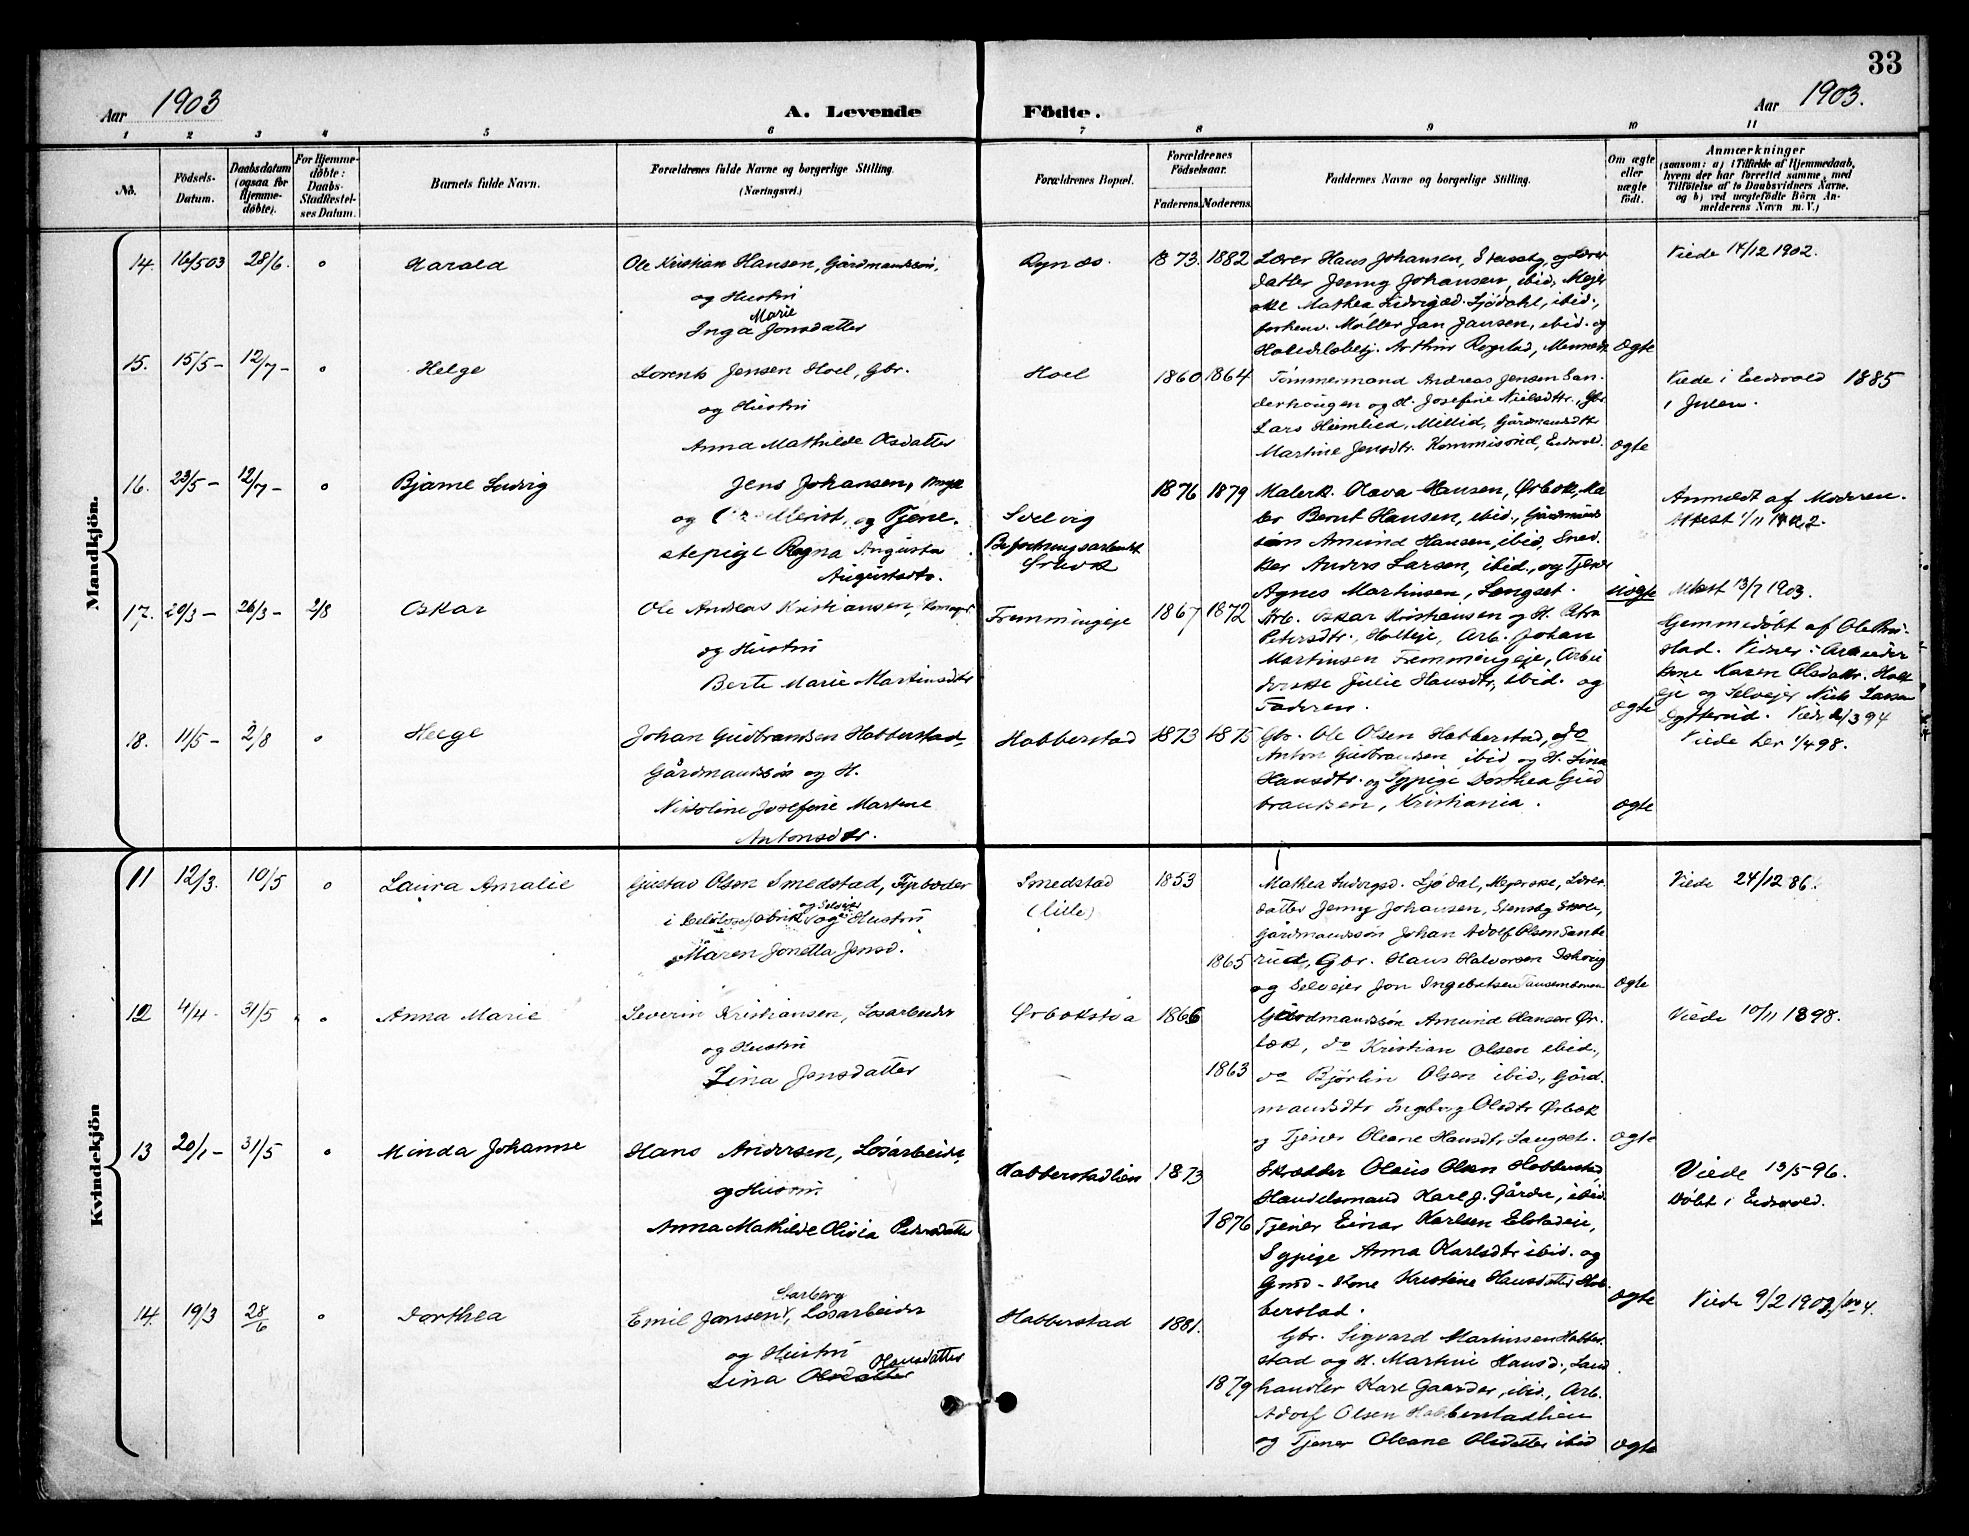 33
Aar 1903
A. Levende Födte.
Aar 1903.
1 2 3 4 5 6 7 8 9 10 11
No.
Födsels-Datum.
Daabsdatum (ogsaa for Hjemme-döbte).
For Hjemme-döbte: Daabs-Stadfæstel-ses Datum.
Barnets fulde Navn.
Forældrenes fulde Navne og borgerlige Stilling. (Næringsvei.)
Forældrenes Bopæl.
Forældrenes Födselsaar.
Faderens. Moderens.
Faddernes Navne og borgerlige Stilling.
Om ægte eller uægte födt.
Anmærkninger
(saasom: a) i Tilfælde af Hjemmedaab, hvem der har forrettet samme, med Tilföielse af to Daabsvidners Navne, og b) ved uægtefödte Börn An-melderens Navn m. V.)
Mandkjön.
14. 16/5 03 28/6. o Harald
Ole Kristian Hansen, Gårdmandssøn,
og Hustru
Marie
Inga Jonsdatter
1873. 1882
Lærer Hans Johansen, Stensby, og Lærer
datter Jenny Johansen, ibid, Mejer
ske Mathea Ludvigsd. Sjødahl, ibid.,
forhenv. Møller Jan Jansen, ibid. og
Ægte
Viede 14/12 1902.
15. 15/5 - 12/7 - o Helge
Lorents Jensen Hoel, Gbr.
og Hustru
Anna Mathilde Olsdatter
Hoel
1860 1864
Tømmermand Andreas Jensen San-
derhougen og H. Josefine Nielsdtr., Gbr.
Lars Heimlied, Millid, Gårdmandsdtr
Martine Jensdtr. Kommisrud, Eidsvold.
Ægte
Viede i Eidsvold 1885
i Julen.
16. 23/5 - 12/7 - o Bjarne Ludvig
Jens Johansen, Ungk
og Tjene-
stepige Ragna Augusta
Augustsdtr.
Solvig
Befæstningsarbeidet
Ørbæk
1876 1879
Malersk. Olava Hansen, Ørbæk, Ma-
ler Bernt Hansen, ibid, Gårdmands
søn Amund Hansen, ibid, Sned-
ker Anders Larsen, ibid., og Tjener
Agnes Martinsen, Langset.
Uægte
Anmeldt af Moderen.
Attest 13/7 1903.
17. 20/3 - 26/3 - 2/8 Oskar
Ole Andreas Kristiansen,
og Hustru
Berte Marie Martinsdtr
Fremmingeje
1867 1872
Arb. Oskar Kristiansen og H. Petra
Petersdtr., Holteje, Arb. Johan
Martinsen Fremmingeje, Arbei
derske Julie Hansdtr, ibid. og
Faderen.
Ægte
Hjemmedøbt af Ole Bru-
stad. Vidner: Arbeider
kone Karen Olsdatr. Holt
eje og Selveier Niels Larsen
18. 11/5 - 2/8 o Helge
Johan Gudbrandsen Habberstad,
Gårdmandssøn og H.
Nikoline Josefine Martine
Antonsdtr.
Habberstad
1873 1875
Gbr. Ole Olsen Habberstad, do
Anton Gudbrandsen ibid og H. Lina
Hansdtr. og Sypige Dorthea Gud
brandsen, Kristiania.
Ægte
Viede her 1/4 98.
Kvindekjön
11 12/3. 10/5 o Laura Amalie
Gustav Olsen Smedstad, Fyrbøder
og Selvejer
i Cellulosefabrik og Hustru
Maren Jonetta Jensd.
Smedstad
(lille)
1853
1865
Mathea Ludvigsd. Sjødal, Mejerske, Lærer
datter Jenny Johansen, Stensby Skole,
Gårdmandssøn Johan Adolf Olsen Sande
rud, Gbr. Hans Halvorsen
og Selvejer Jon Ingebretsen
Ægte
Viede 24/12 86.
12 4/4. 31/5 o Anna Marie
Severin Kristiansen, Løsarbeider
og Hustru
Lina Jensdatter
Ørbækstøa
1866
1863
Gårdmandssøn Amund Hansen Ør-
bæk, do Kristian Olsen ibid.,
do Bjørlin Olsen ibid., Gård-
mandsdtr Ingeborg Olsdtr Ørbæk
og Tjener Oleane Hansdtr Langset.
Ægte
Viede 10/11 1898.
13 20/1 - 31/5 o Minda Johanne
Hans Andersen, Løsarbeider,
og Hustru
Anna Mathilde Olivia Pedersdatter
Habberstadlien
1873
1876
Skrædder Olaus Olsen Habberstad,
Handelsmand Karl J. Gårder, ibid.
Tjener Einar Karlsen Elstadeie,
Sypige Anna Karlsdtr ibid. og
Gmd-Kone Kristine Hansdatter Hab-
berstad.
Ægte
Viede 13/5 96.
Døbt i Eidsvold.
14. 19/3 28/6 o Dorthea
Emil Jansen, Løsarbeider
og Hustru
Hansdatter
Lina Olsdatter
Habberstad
1881.
1879
Gbr. Sigvard Martinsen Habber
stad og H. Martine Hansd., Land
handler Karl Gaarder, ibid., Arb.
Adolf Olsen Habberstadlien
og Tjener Oleane Olsdatter ibid
Ægte